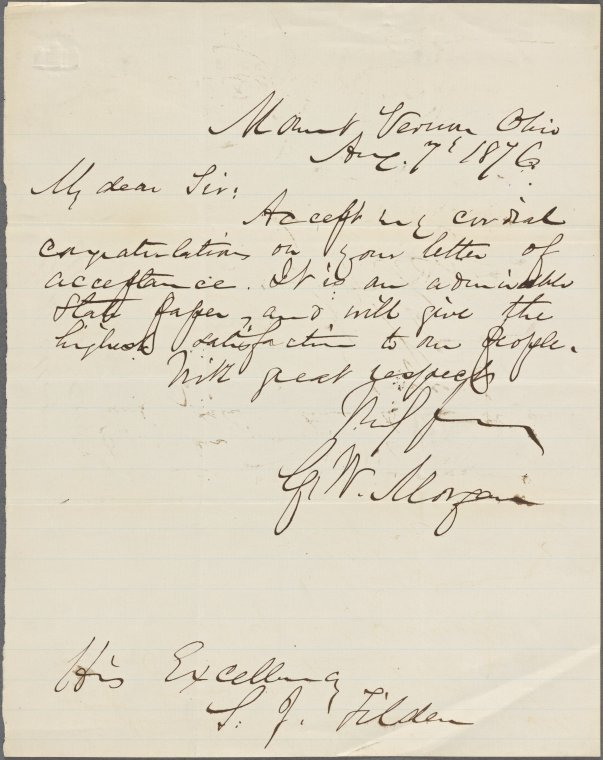 Mount Vernon Ohio
Aug. 7th 1876
My dear Sir:
Accept my cordial
congratulations on your letter of
acceptance. It is an admirable
State paper, and will give the
highest satisfaction to our people.
With great respect
G. W. Morgan
His Excellency
S. J. Tilden